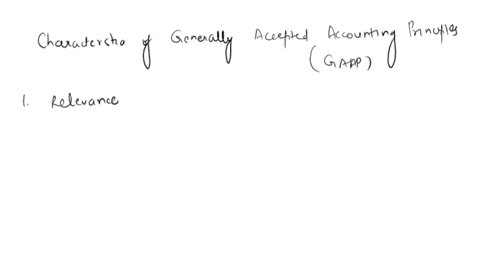 Characterstic of Generally Accepted Accounting Principles
(GAPP)
1. Relevance